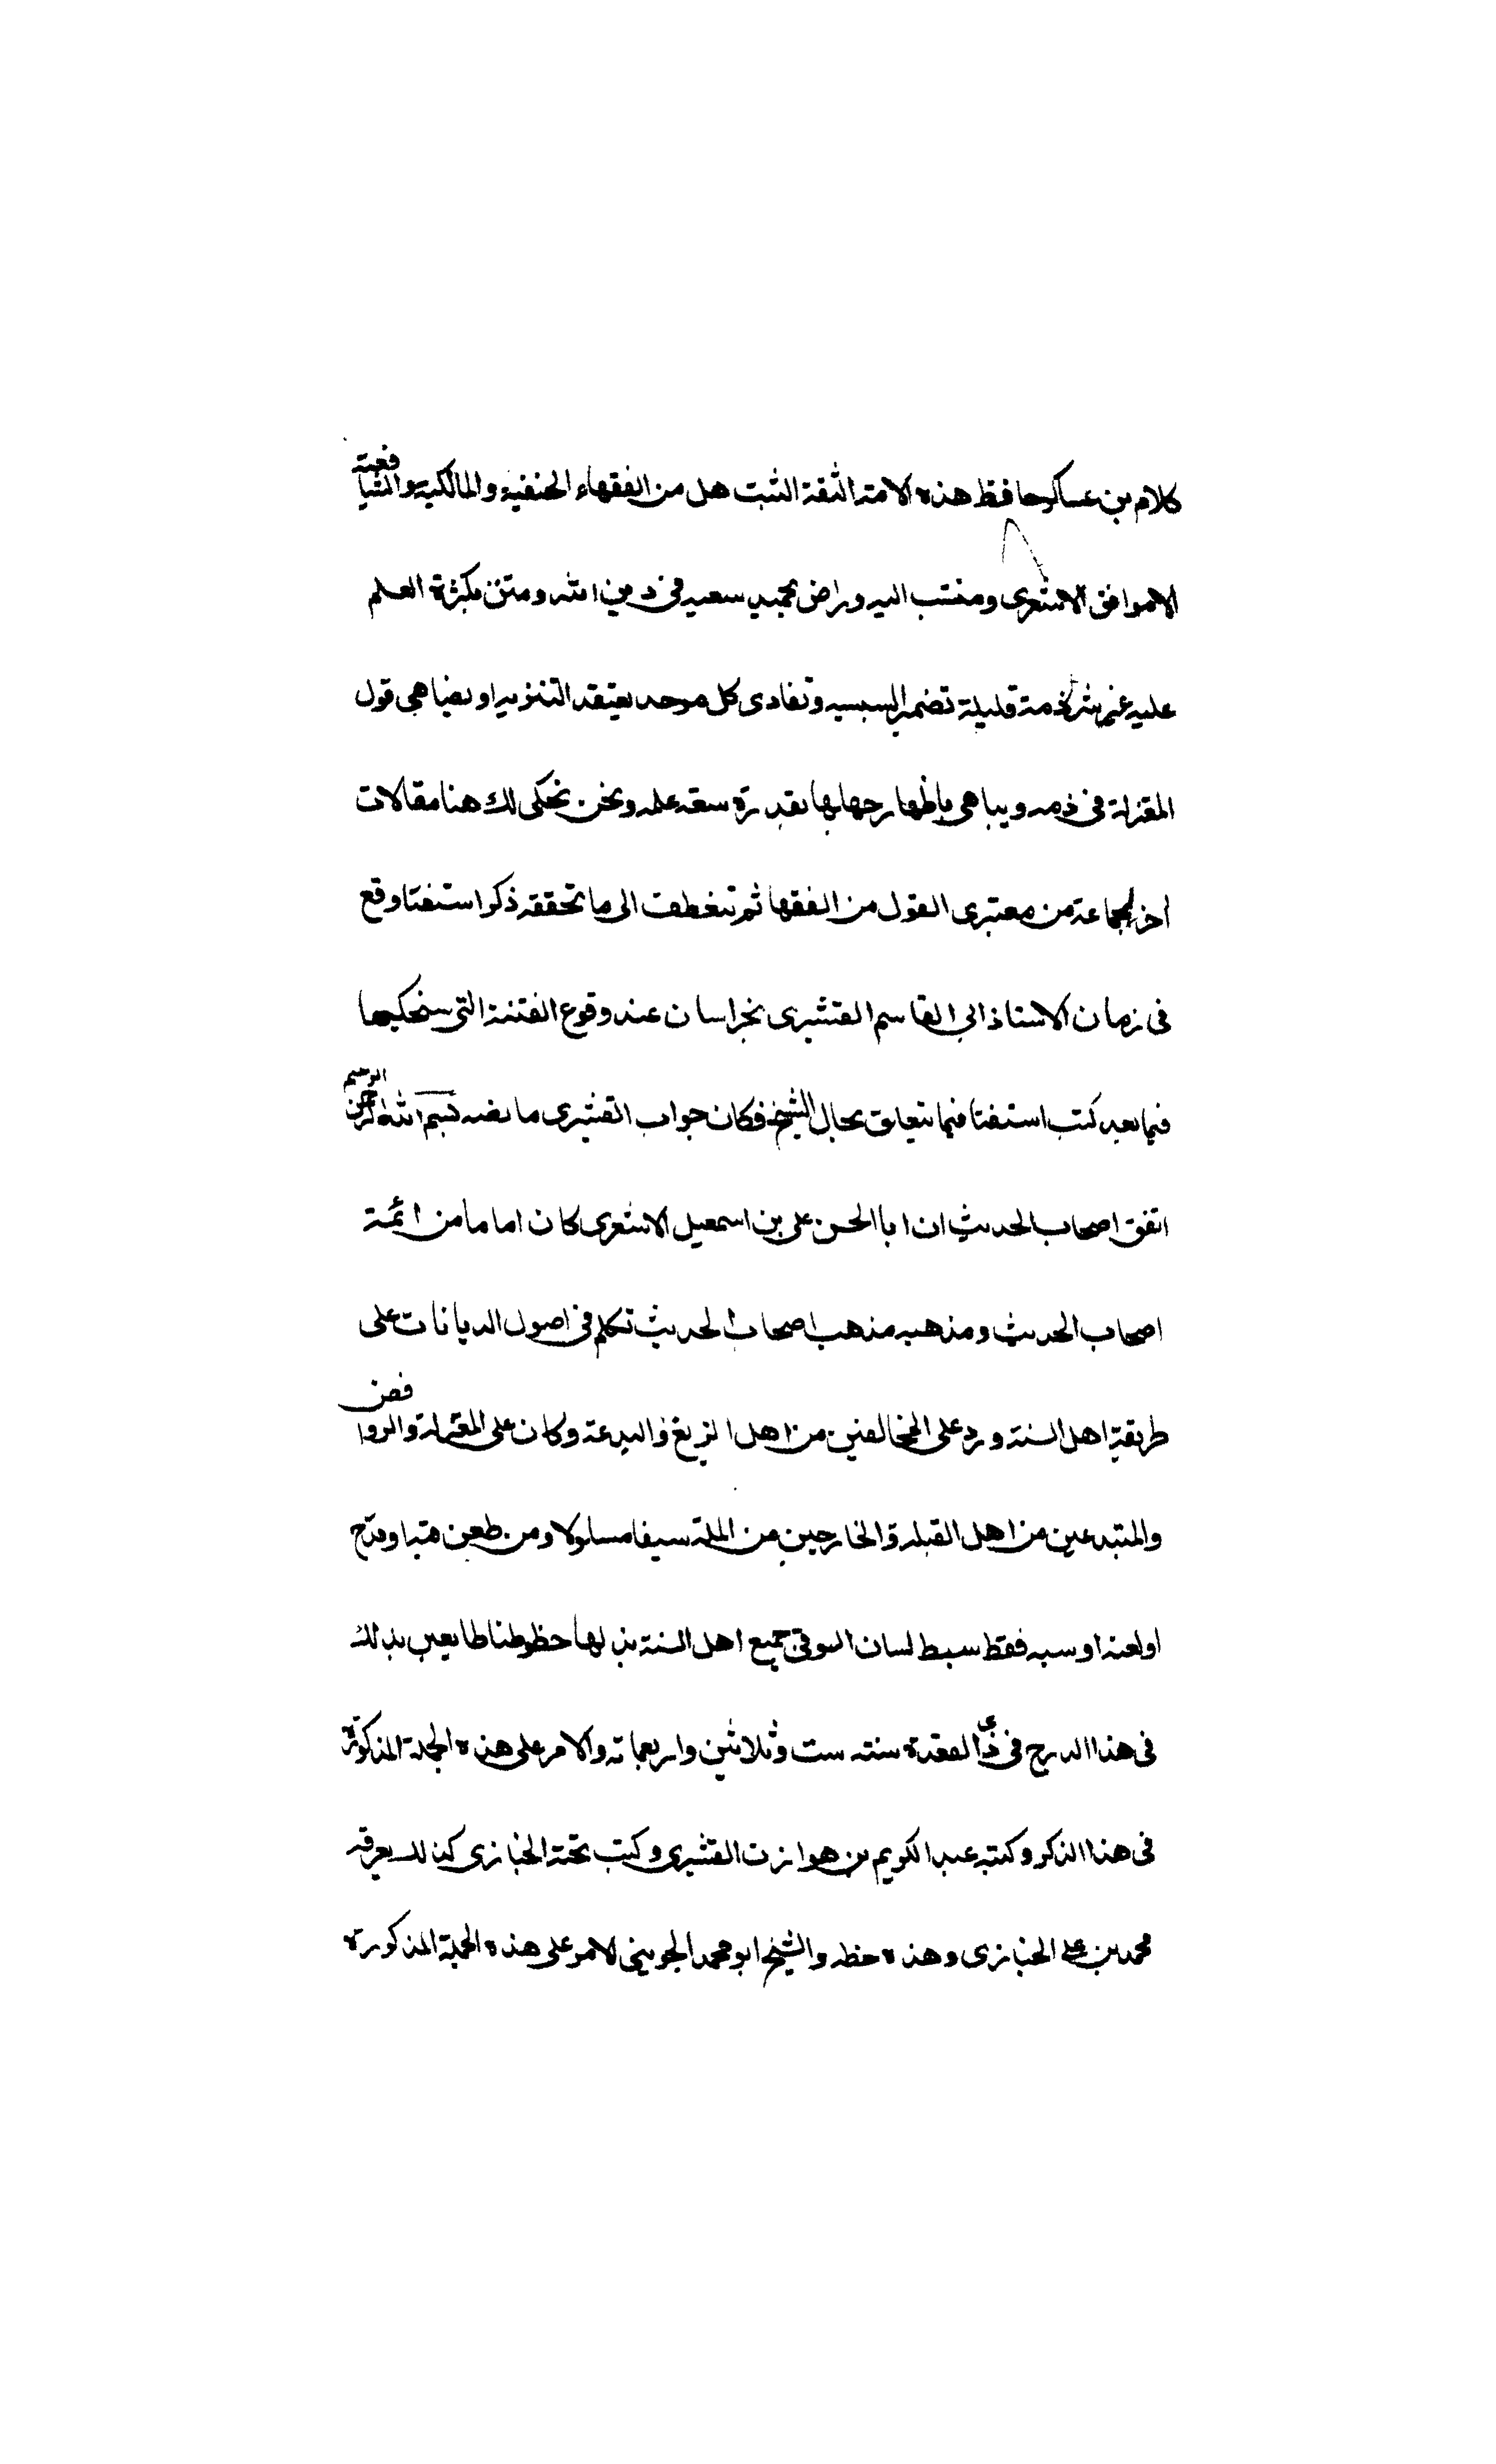 كلام بن عساكر حافظ هذه الامة الثقة الثبت هل من الفقهاء الحنفية والمالكية والشافعية
الا موافق الاشعرى ومنتسب اليه وراض بحميد سعيه فى دين الله ومثن بكثرة العلم
عليه غير شرذمة قليلة تضمر التشبيه وتعادى كل موحد يعتقد التنزيه او يضاهى قول
المعتزلة فى ذمه ويباهى باظهار جهلها بقدرة سعة علمه ونحن نحكى لك هنا مقالات
اخر لجماعة من معتبرى القول من الفقها ثم ننعطف الى ما نحققه ذكر استفتا وقع
فى زمان الاستاذ ابى القاسم القشيرى بخراسان عند وقوع الفتنة التى سنحكيها
فيما بعد كتب استفتا فيما يتعلق بحال الشيخ فكان جواب القشيرى ما نصه بسم الله الرحمن الرحيم
اتفق اصحاب الحديث ان ابا الحسن على بن اسمعيل الاشعرى كان اماما من ائمة
اصحاب الحديث ومذهبه مذهب اصحاب الحديث تكلم فى اصول الديانات على
طريقة اهل السنة ورد على المخالفين من اهل الزيغ والبدعة وكان على المعتزلة والروافض
والمبتدعين من اهل القبلة والخارجين من الملة سيفا مسلولا ومن طعن فيه او قدح
او لعنه او سبه فقط سبط لسان السوفى جميع اهل السنة بذلها حظوظنا طايعين بذلك
فى هذا الدرج فى ذى القعدة سنة ست وثلاثين واربعماته والامر على هذه الجملة المذكورة
فى هذا الذكر وكتبه عبد الكريم بن هوازن القشيرى وكتب تحته الخبازى كذلك يعرفه
محمد بن على الخبازى وهذه خطه والشيخ ابو محمد الجوينى الامر على هذه الجملة المذكورة